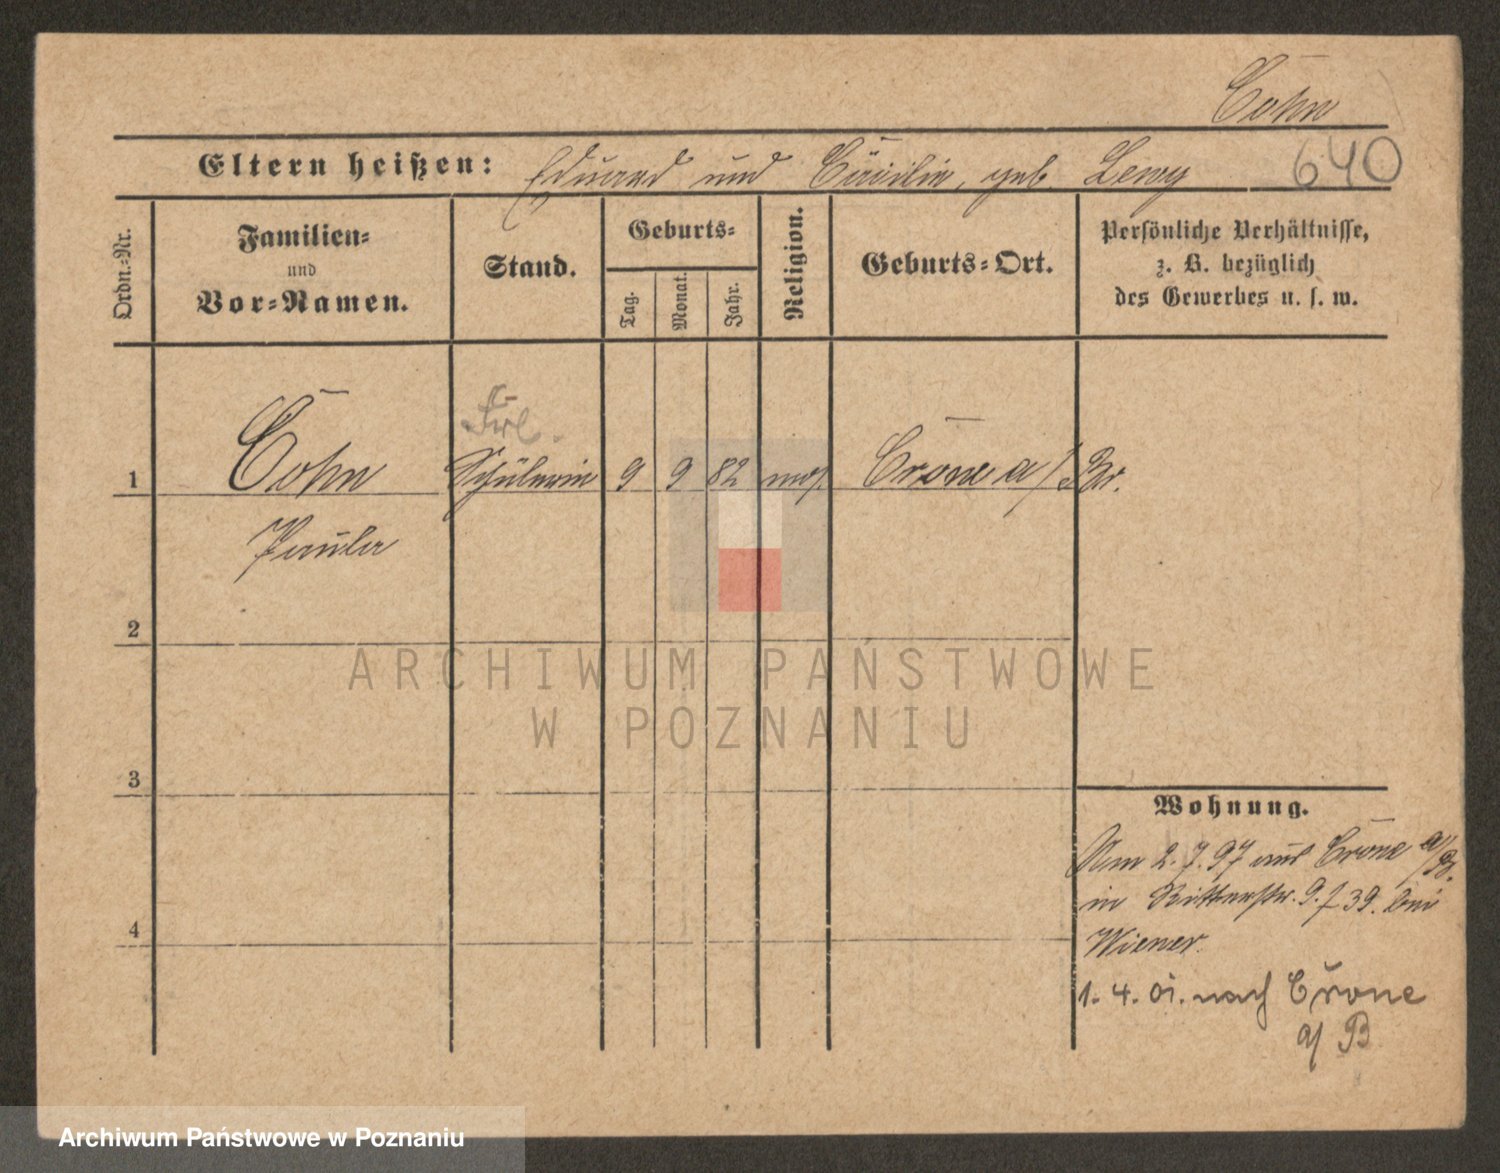 Cohn
Eltern heißen: Eduard und Cäcilie, geb. Lewy 640
Ordn.-Nr.
Familien- und Vor-Namen.
Stand.
Geburts-
Tag.
Monat.
Jahr.
Religion.
Geburts-Ort.
Persönliche Verhältnisse,
z. B. bezüglich
des Gewerbes u. s. w.
Frl.
1 Cohn Schülerin 9 9 82 mos. Crone a/Br.
Paula
2
3
4
ARCHIWUM PAŃSTWOWE
W POZNANIU
Wohnung.
Am 2.7.97 aus Crone a/B.
in Ritterstr. 9. f 39. bei
Wiener.
1. 4. 01. nach Crone
a/ B
Archiwum Państwowe w Poznaniu